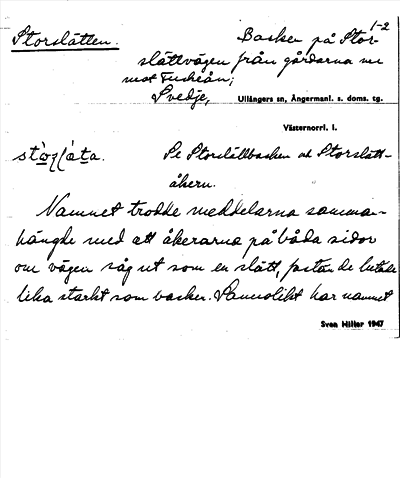 1-2
Storslätten. Backen på Stor-
slättvägen från gårdarna ner
mot Fuskeån;
Svedje, Ullångers sn, Ångermanl. s. doms. tg.
Västernorrl. l.
Se Storslättbacken och Storslätt-
åkern.
Namnet trodde meddelarna samman-
hängde med att åkrarna på båda sidor
om vägen såg ut som en slätt, fastän de lutade
lika starkt som backen. Sannolikt har namnet
Sven Hiller 1947